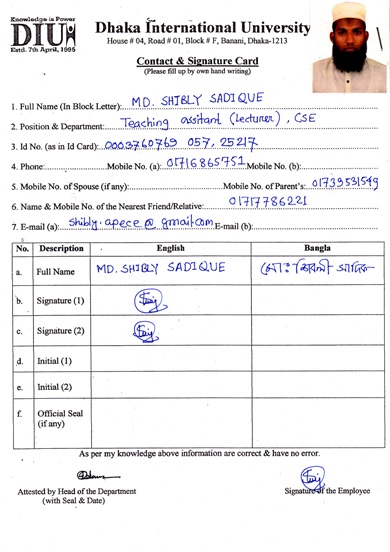 Knowledge is Power
DIU
Estd. 7th April, 1995
Dhaka International University
House # 04, Road # 01, Block # F, Banani, Dhaka-1213
Contact & Signature Card
(Please fill up by own hand writing)
1. Full Name (In Block Letter): MD. SHIBLY SADIQUE
2. Position & Department: Teaching assitant (Lecturer), CSE
3. Id No. (as in Id Card): 0003760769 057, 25217
4. Phone: Mobile No. (a): 01716865751 Mobile No. (b):
5. Mobile No. of Spouse (if any): Mobile No. of Parent's: 01739531549
6. Name & Mobile No. of the Nearest Friend/Relative: 01717786221
7. E-mail (a): shibly.apece@gmail.com E-mail (b):
No. Description English Bangla
a. Full Name MD. SHIBLY SADIQUE মোঃ শিবলী সাদিক
b. Signature (1)
c. Signature (2)
d. Initial (1)
e. Initial (2)
f. Official Seal (if any)
As per my knowledge above information are correct & have no error.
Attested by Head of the Department Signature of the Employee
(with Seal & Date)